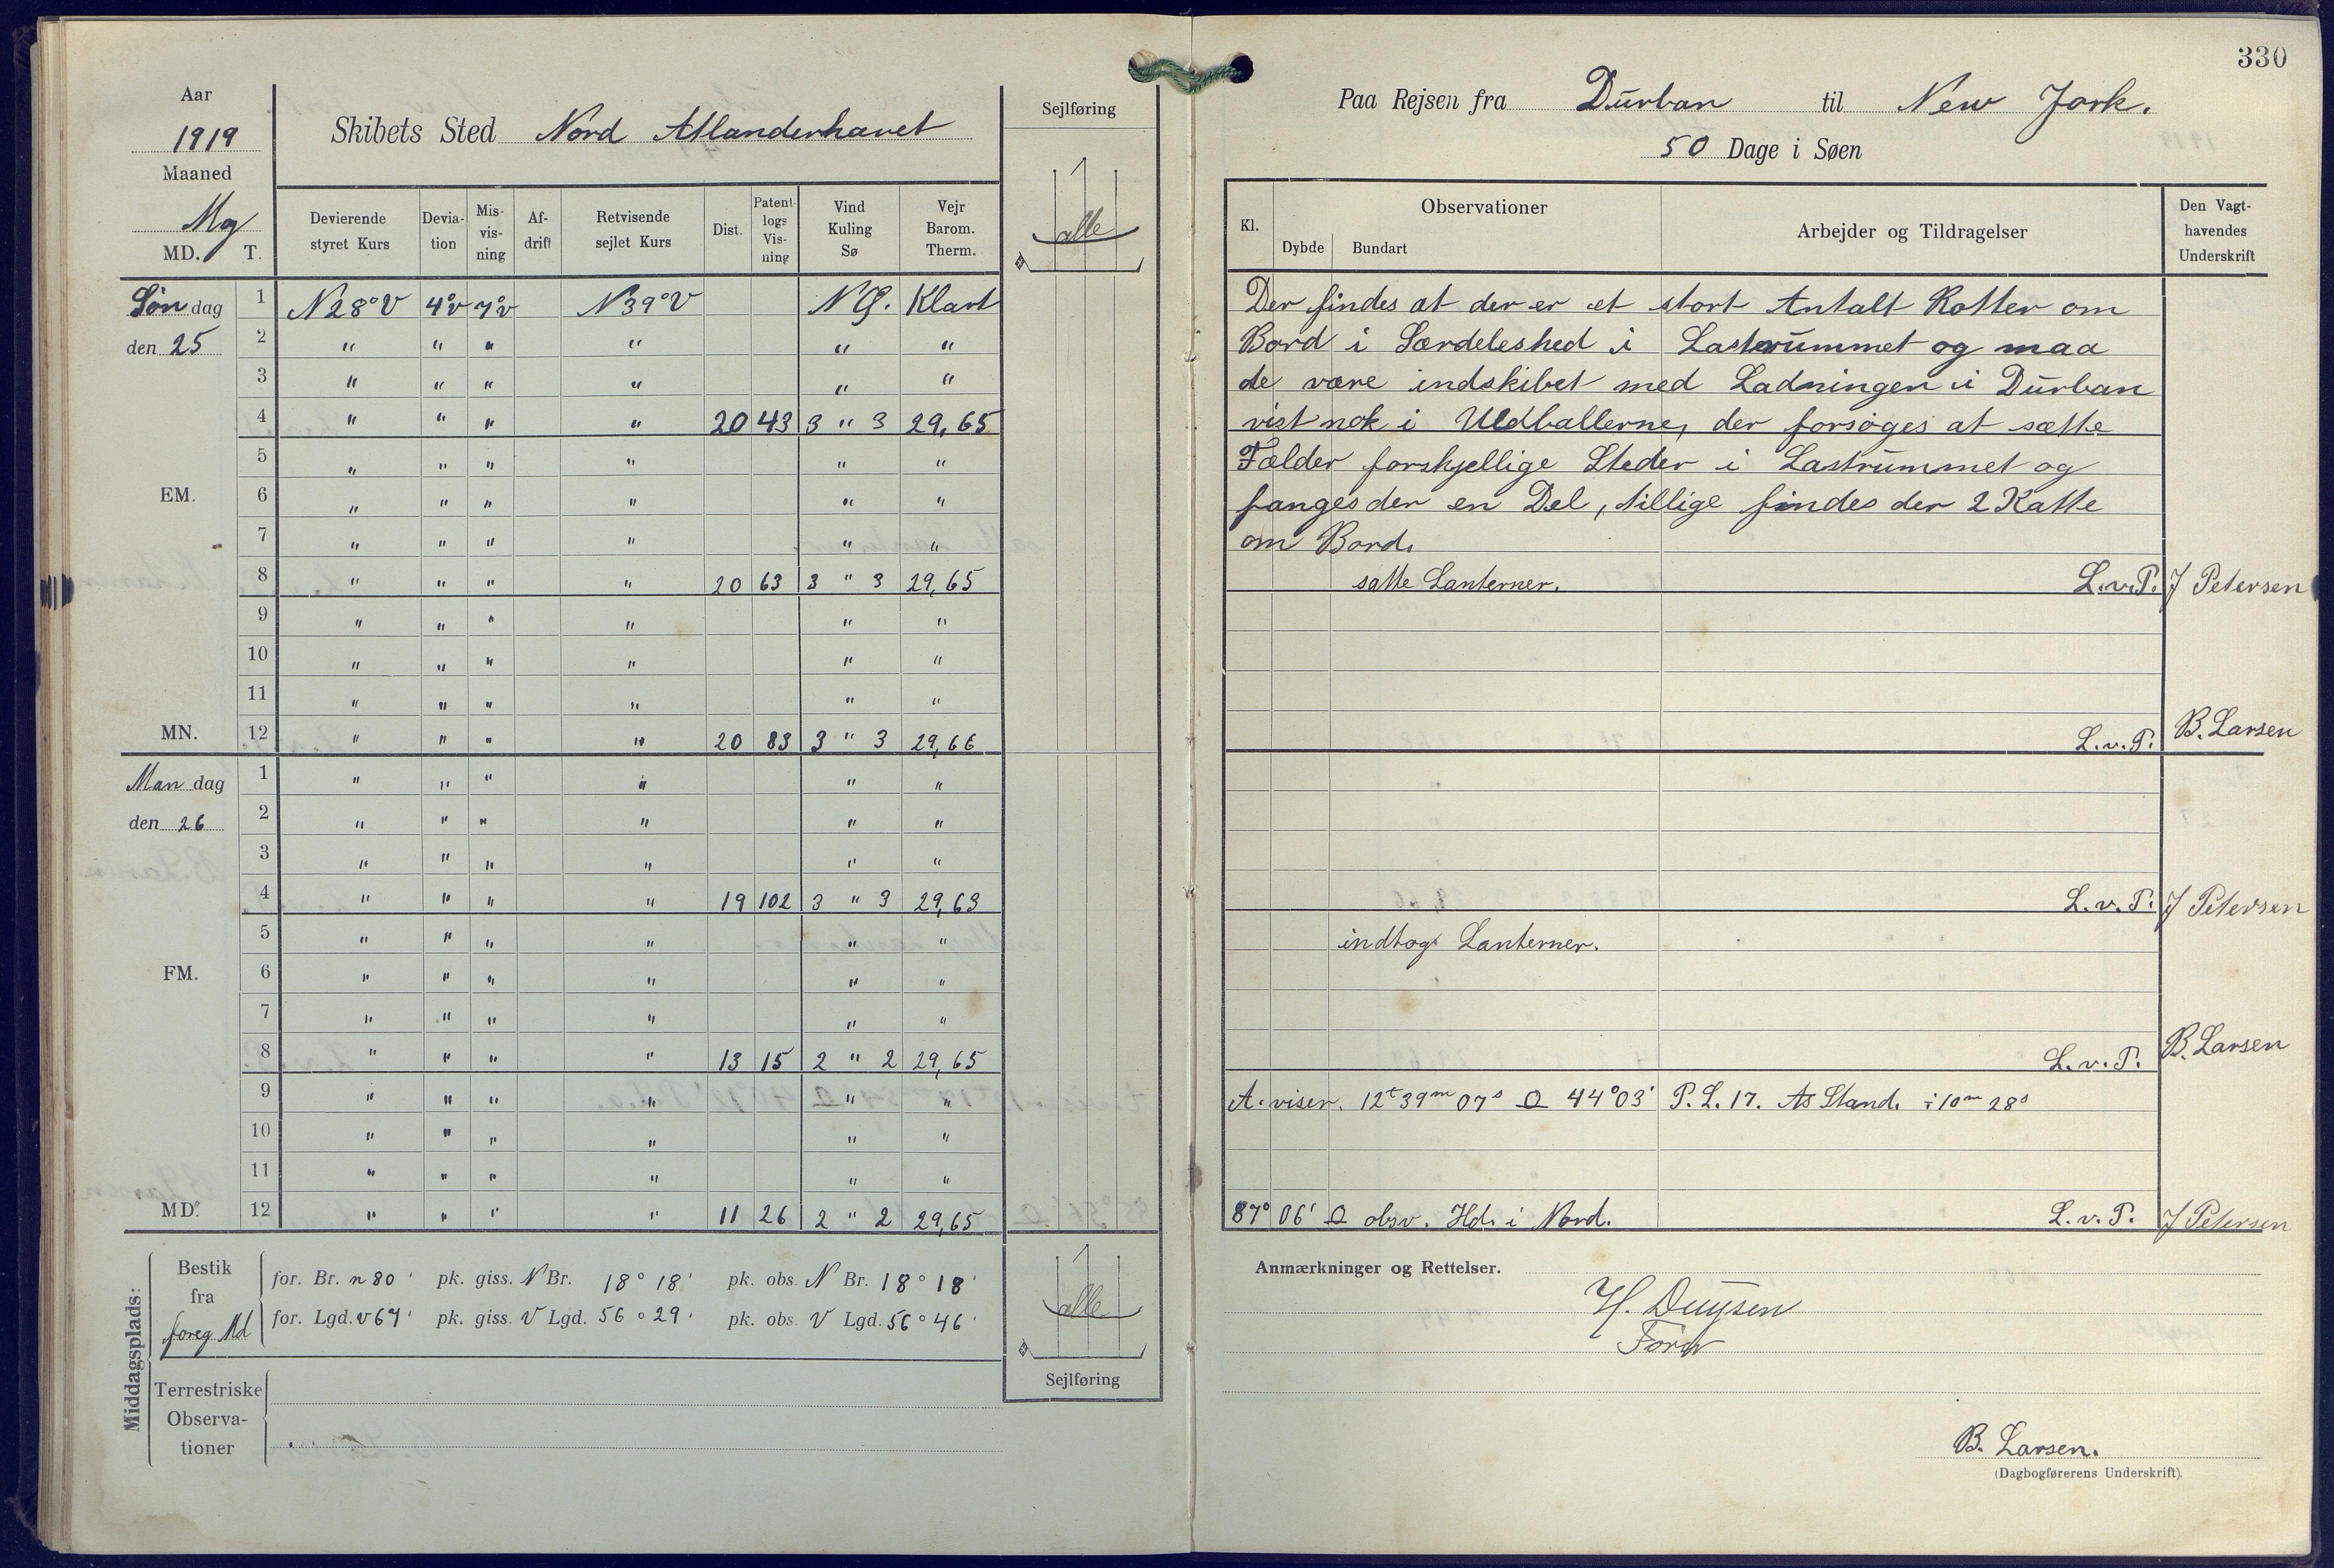 330
Aar
1919
Maaned
Maj
MD. T.
Skibets Sted Nord Atlanderhavet
Sejlføring
Devierende styret Kurs
Devia-tion
Mis-vis-ning
Af-drift
Retvisende sejlet Kurs
Dist.
Patent-logs Vis-ning
Vind Kuling Sø
Vejr Barom. Therm.
alle
Søndag
den 25
1 N28°V 4°v 7°v N39°V NØ. Klart
2 " " " " " "
3 " " " " " "
4 " " " " 20 43 3 " 3 29,65
5 " " " " " "
EM.
6 " " " " " "
7 " " " " " "
8 " " " " 20 63 3 " 3 29,65
9 " " " " " "
10 " " " " " "
11 " " " " " "
MN.
12 " " " " 20 83 3 " 3 29,66
Mandag
den 26
1 " " " " " "
2 " " " " " "
3 " " " " " "
4 " " " " 19 102 3 " 3 29,63
5 " " " " " "
FM.
6 " " " " " "
7 " " " " " "
8 " " " " 13 15 2 " 2 29,65
9 " " " " " "
10 " " " " " "
11 " " " " " "
MD.
12 " " " " 11 26 2 " 2 29,65
Middagsplads:
Bestik fra foreg Md
for. Br. n 80' pk. giss. N Br. 18° 18' pk. obs. N Br. 18° 18'
for. Lgd. v 67' pk. giss. V Lgd. 56° 29' pk. obs. V Lgd. 56° 46'
alle
Sejlføring
Terrestriske
Observa-
tioner
Paa Rejsen fra Durban til New York.
50 Dage i Søen
Kl.
Observationer
Dybde Bundart
Arbejder og Tildragelser
Den Vagt-
havendes
Underskrift
Der findes at der er et stort Antalt Rotter om
Bord i Særdeleshed i Lastrummet og maa
de være indskibet med Ladningen i Durban
vist nok i Uldballerne, der forsøges at sætte
Fælder forskjellige Steder i Lastrummet og
fanges der en Del, tillige findes der 2 Katte
om Bord.
satte Lanterner. L.v.P. J Petersen
L.v.P. B. Larsen
L.v.P. J Petersen
indtog Lanterner.
L.v.P. B. Larsen
A. viser. 12t 39m 07s ☉ 44°03' P.L. 17. As Stand. ÷ 10m 28s
87° 06' ☉ obsv. Hd. i Nord. L.v.P. J Petersen
Anmærkninger og Rettelser.
H. Duysen
Fører
B. Larsen.
(Dagbogførerens Underskrift).